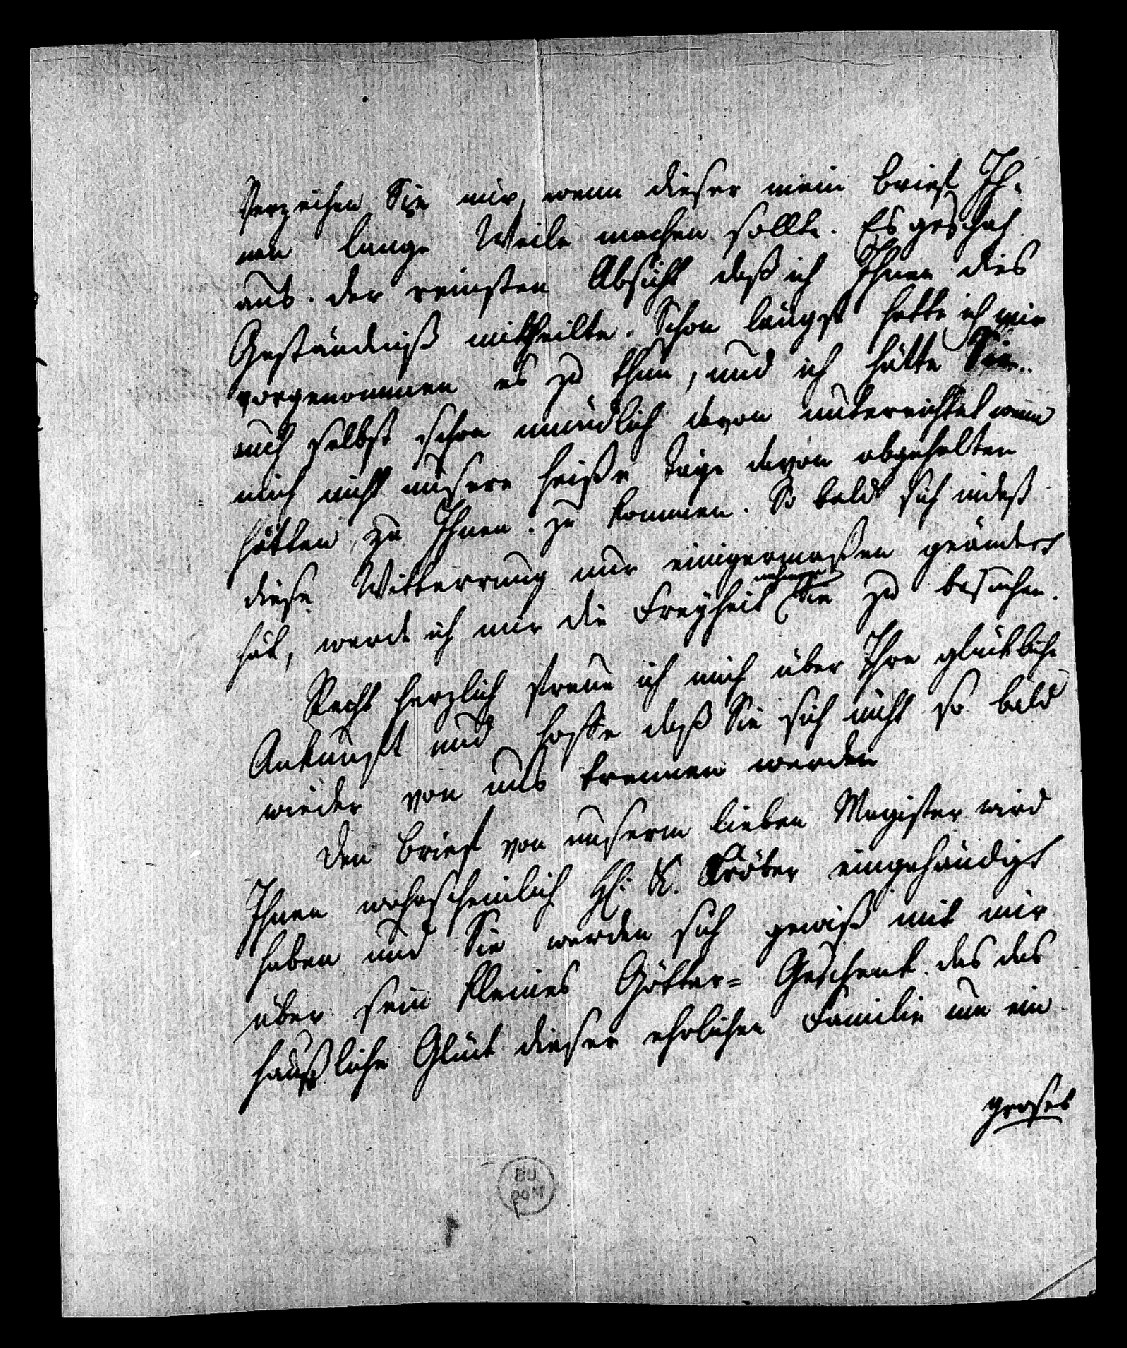 Verzeihen Sie mir, wenn dieser mein Brief Ih-
nen lange Weile machen sollte. Es geschah
aus der reinsten Absicht daß ich Ihnen dies
Geständniß mittheilte. Schon längst hatte ich mir
vorgenommen es zu thun, und ich hätte Sie
auch selbst schon mündlich davon unterrichtet wenn
mich nicht unsere heiße Tage davon abgehalten
hätten zu Ihnen zu kommen. So bald sich indeß
diese Witterrung nur einigermaßen geändert
hat, werde ich mir die Freyheit nehmen Sie zu besuchen.
Recht herzlich freue ich mich über Ihre glückliche
Ankunft und hoffe daß Sie sich nicht so bald
wieder von uns trennen werden
Den Brief von unserm lieben Magister wird
Ihnen wahrscheinlich H. K. Kröber eingehändigt
haben und Sie werden sich gewiß mit mir
über sein kleines Götter= Geschenk das das
haußliche Glück dieser ehrlichen Familie um ein
groses
BU